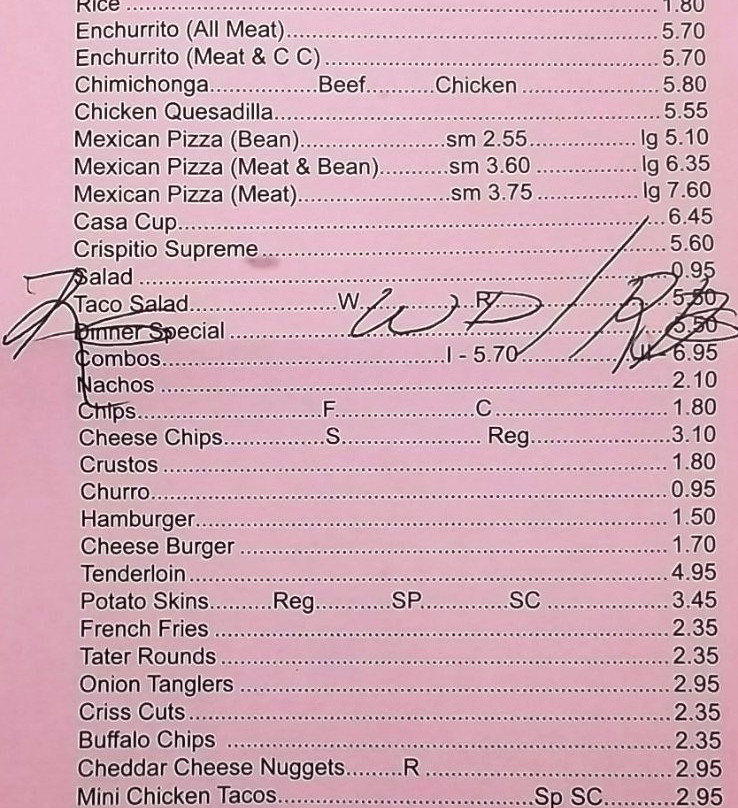 Rice 1.80
Enchurrito (All Meat) 5.70
Enchurrito (Meat & C C) 5.70
Chimichonga Beef Chicken 5.80
Chicken Quesadilla 5.55
Mexican Pizza (Bean) sm 2.55 lg 5.10
Mexican Pizza (Meat & Bean) sm 3.60 lg 6.35
Mexican Pizza (Meat) sm 3.75 lg 7.60
Casa Cup 6.45
Crispitio Supreme 5.60
Salad 0.95
Taco Salad W R 5.50
WD
Dinner Special 5.50
Combos I - 5.70 II - 6.95
Nachos 2.10
Chips F C 1.80
Cheese Chips S Reg 3.10
Crustos 1.80
Churro 0.95
Hamburger 1.50
Cheese Burger 1.70
Tenderloin 4.95
Potato Skins Reg SP SC 3.45
French Fries 2.35
Tater Rounds 2.35
Onion Tanglers 2.95
Criss Cuts 2.35
Buffalo Chips 2.35
Cheddar Cheese Nuggets R 2.95
Mini Chicken Tacos Sp SC 2.95